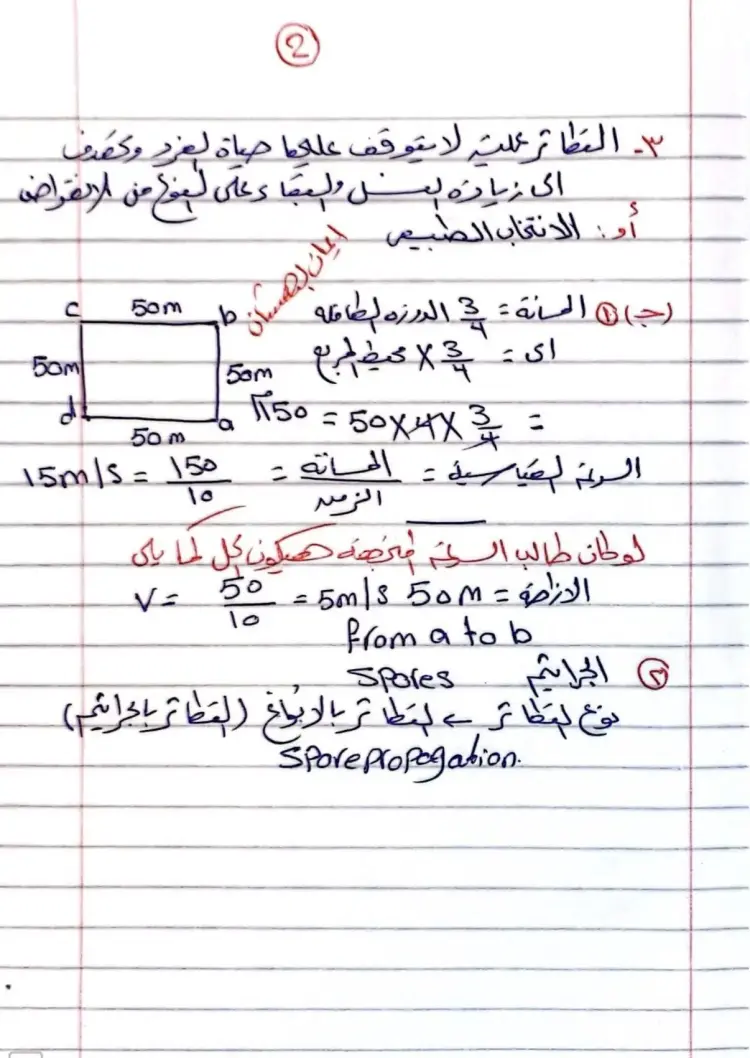 2
٣- التكاثر عملية لا يتوقف عليها حياة الفرد وتهدف
الى زيادة النسل والبقاء على النوع من الانقراض
أو: الانتخاب الطبيعى
ايمان
(ج) ① المسافة = 3/4 الدورة الكاملة
اى = 3/4 × محيط المربع
= 3/4 × 4 × 50 = 150
c 50m b
50m 50m
d 50m a
السرعة القياسية = المسافة / الزمن = 150 / 10 = 15m/s
لو كان طالب السرعة المتجهة هيكون الحل كما يلى
الازاحة = 50m V = 50 / 10 = 5m/s
from a to b
② الجراثيم Spores
نوع التكاثر ← التكاثر بالابواغ (التكاثر بالجراثيم)
Spore propagation.